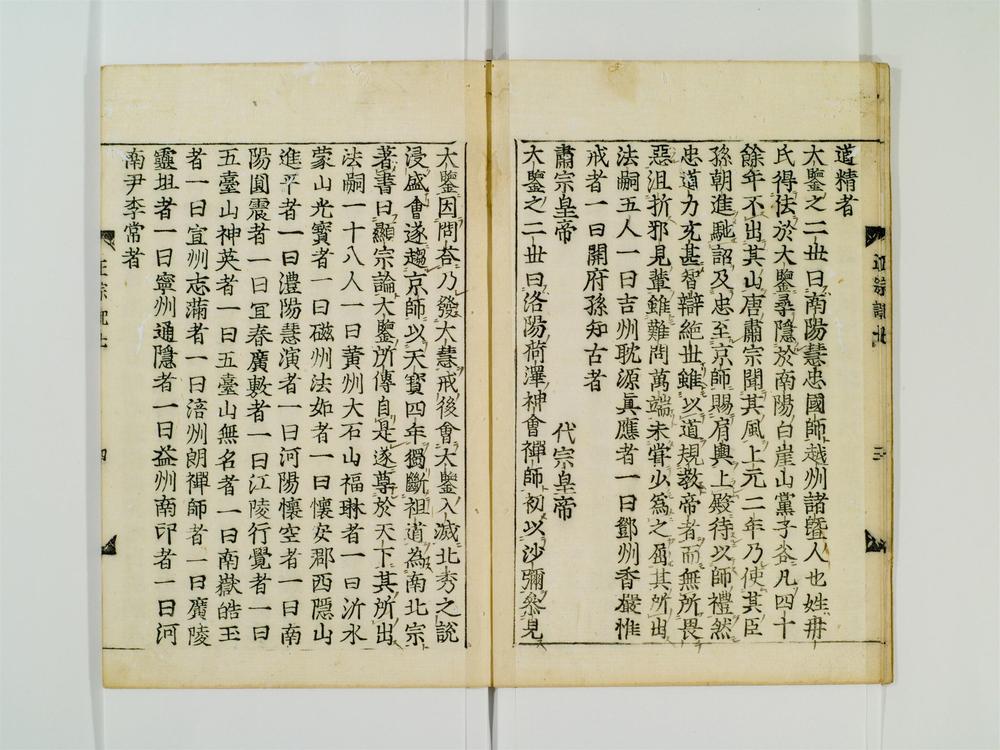 道精者
大鑒之二世曰南陽慧忠國師越州諸曁人也姓冉
氏得法於大鑒尋隱於南陽白崖山黨子谷凡四十
餘年不出其山唐肅宗聞其風上元二年乃使其臣
孫朝進馳詔及忠至京師賜肩輿上殿待以師禮然
忠道力充甚智辯絶世雖以道規教帝者而無所畏
惡沮折邪見輩雖難問萬端未甞少爲之屈其所出
法嗣五人一曰吉州耽源眞應者一曰鄧州香嚴惟
戒者一曰開府孫知古者
肅宗皇帝 代宗皇帝
大鑒之二世曰洛陽荷澤神會禪師初以沙彌叅見
大鑒因問荅乃發大慧戒後會大鑒入滅北秀之說
浸盛會遂趨京師以天寶四年獨斷祖道為南北宗
著書曰顯宗論大鑒所傳自是遂尊於天下其所出
法嗣一十八人一曰黄州大石山福琳者一曰沂水
蒙山光寶者一曰磁州法如者一曰懷安郡西隱山
進平者一曰澧陽慧演者一曰河陽懷空者一曰南
陽圓震者一曰冝春廣敷者一曰江陵行覺者一曰
五臺山神英者一曰五臺山無名者一曰南嶽皓玉
者一曰宣州志滿者一曰涪州朗禪師者一曰廣陵
靈坦者一曰寧州通隱者一曰益州南印者一曰河
南尹李常者
三
四